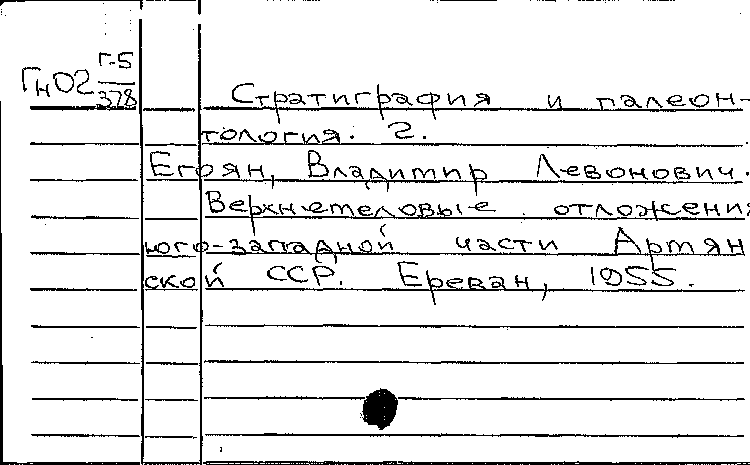 ГнО2 Г-5
378
Стратиграфия и палеон-
тология. 2.
Егоян, Владимир Левонович.
Верхнемеловые отложения
юго-западной части Артян
ской ССР. Ереван, 1955.